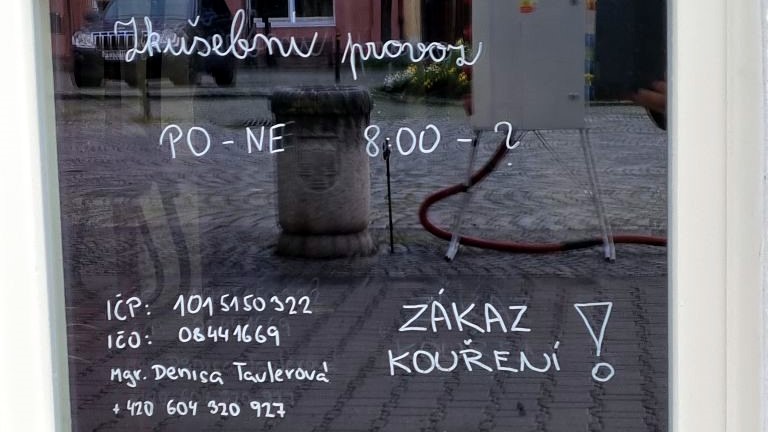 Zkušební provoz
PO - NE 8:00 - ?
IČP: 1015150322
IČO: 08441669
Mgr. Denisa Tavlerová
+420 604 320 927
ZÁKAZ
KOUŘENÍ !